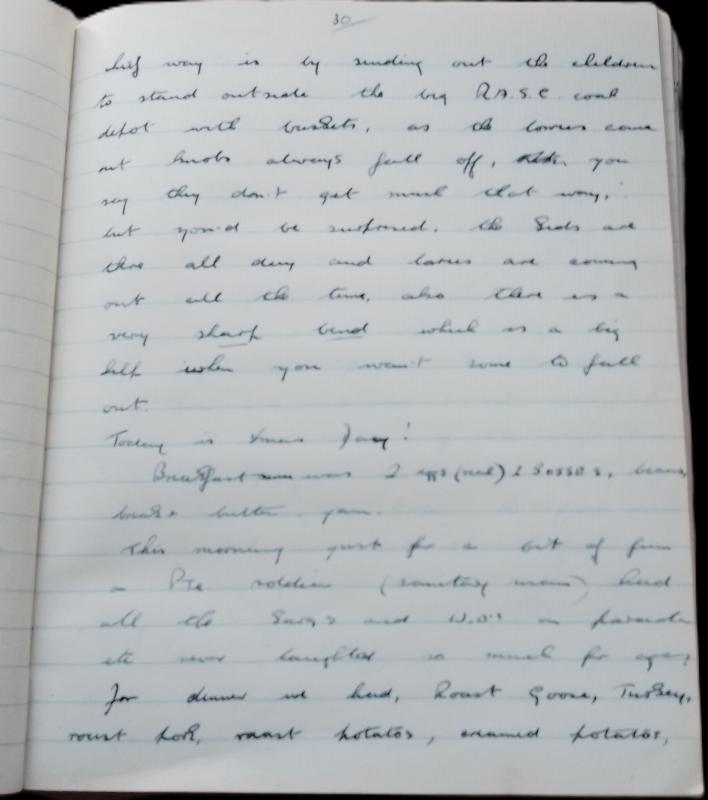 30
way is by sending out the children
to stand outside the big R.A.S.C. coal
depot with buskets, as the lorries come
out knobs always fall off, you
say they don't get much that way,
but you'd be surprised, the kids are
there all day and lories are coming
out all the time, also there is a
very sharp bend which is a big
help when you want some to fall
out.
Today is Xmas Day!
Breakfast was 2 eggs (real) 2 Sossos, beans,
bread + butter. jam.
This morning just for a bit of fun
a Pte soldier (sanitary man) had
all the Sargs and W.O's on parade
etc never laughted so much for ages,
for dinner we had, Roast Goose, Turkey,
roust pork, roast potatos, creamed potatos,